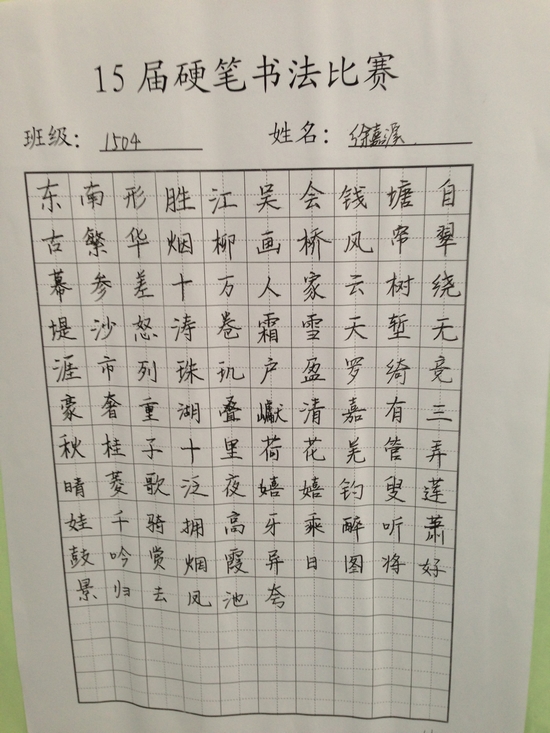 15届硬笔书法比赛
班级：1504 姓名：徐嘉溪
东南形胜江吴会钱塘自
古繁华烟柳画桥风帘翠
幕参差十万人家云树绕
堤沙怒涛卷霜雪天堑无
涯市列珠玑户盈罗绮竞
豪奢重湖叠巘清嘉有三
秋桂子十里荷花羌管弄
晴菱歌泛夜嬉嬉钓叟莲
娃千骑拥高牙乘醉听萧
鼓吟赏烟霞异日图将好
景归去凤池夸